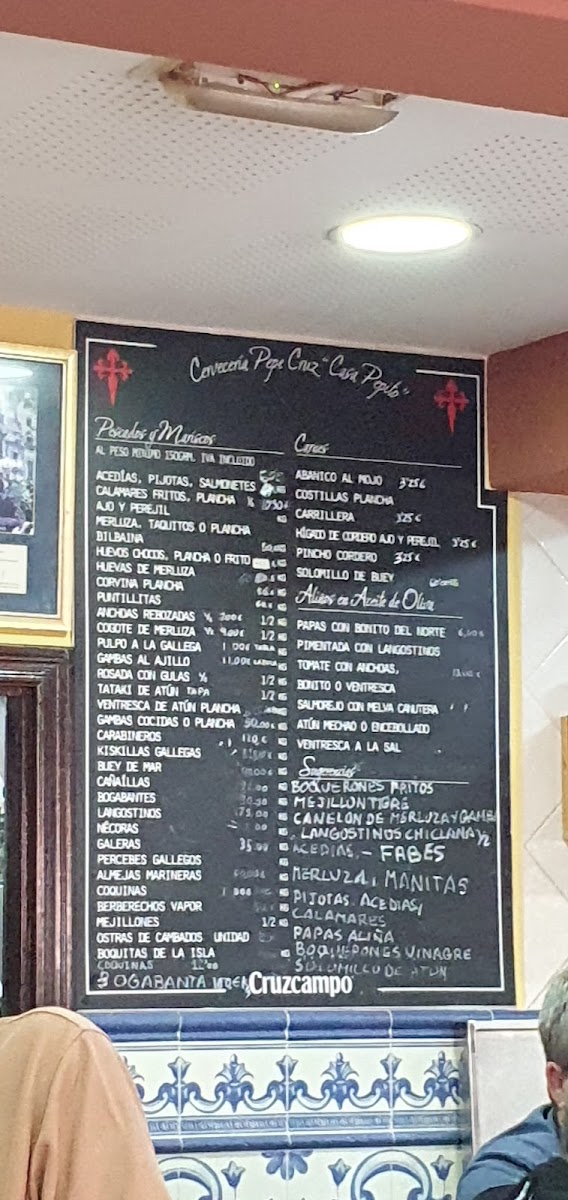 Cervecería Pepe Cruz "Casa Pepito"
Pescados y Mariscos
AL PESO MINIMO 150GRM. IVA INCLUIDO
ACEDÍAS, PIJOTAS, SALMONETES KG
CALAMARES FRITOS, PLANCHA
AJO Y PEREJIL KG
MERLUZA, TAQUITOS O PLANCHA
BILBAINA
HUEVOS CHOCOS, PLANCHA O FRITO KG
HUEVAS DE MERLUZA KG
CORVINA PLANCHA KG
PUNTILLITAS KG
ANCHOAS REBOZADAS 1/2 KG
COGOTE DE MERLUZA 9.00€ 1/2 KG
PULPO A LA GALLEGA
GAMBAS AL AJILLO
ROSADA CON GULAS 1/2 KG
TATAKI DE ATÚN TAPA 1/2 KG
VENTRESCA DE ATÚN PLANCHA
GAMBAS COCIDAS O PLANCHA KG
CARABINEROS 110€ KG
KISKILLAS GALLEGAS KG
BUEY DE MAR KG
CAÑAÍLLAS KG
BOGABANTES KG
LANGOSTINOS KG
NÉCORAS KG
GALERAS 35.00 KG
PERCEBES GALLEGOS KG
ALMEJAS MARINERAS KG
COQUINAS KG
BERBERECHOS VAPOR KG
MEJILLONES 1/2 KG
OSTRAS DE CAMBADOS UNIDAD
BOQUITAS DE LA ISLA KG
COQUINAS
Carnes
ABANICO AL MOJO 3'25€
COSTILLAS PLANCHA
CARRILLERA 3'25€
HÍGADO DE CORDERO AJO Y PEREJIL 3'25€
PINCHO CORDERO 3,25€
SOLOMILLO DE BUEY
Aliños en Aceite de Oliva
PAPAS CON BONITO DEL NORTE
PIMENTADA CON LANGOSTINOS
TOMATE CON ANCHOAS,
BONITO O VENTRESCA
SALMOREJO CON MELVA CANUTERA
ATÚN MECHAO O ENCEBOLLADO
VENTRESCA A LA SAL
Sugerencias
BOQUERONES FRITOS
MEJILLON TIGRE
CANELON DE MERLUZA Y GAMBA
LANGOSTINOS CHICLANA 1/2
ACEDIAS.- FABES
MERLUZA, MANITAS
PIJOTAS. ACEDIAS,
CALAMARES
PAPAS ALIÑA
BOQUERONES VINAGRE
SOLOMILLO DE ATUN
Cruzcampo